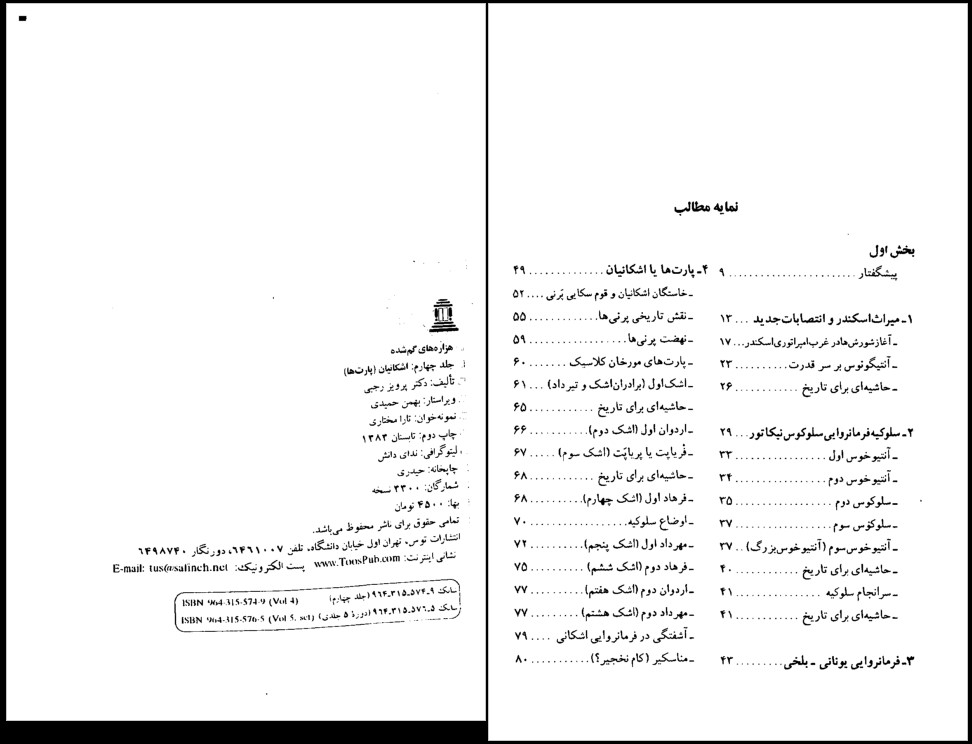 نمایه مطالب
بخش اول
پیشگفتار ....................... ۹
۱ـ میراث اسکندر و انتصابات جدید ... ۱۳
ـ آغاز شورش‌ها در غرب امپراتوری اسکندر... ۱۷
ـ آنتیگونوس بر سر قدرت .......... ۲۳
ـ حاشیه‌ای برای تاریخ ............ ۲۶
۲ـ سلوکیه فرمانروایی سلوکوس نیکاتور... ۲۹
ـ آنتیوخوس اول ................. ۳۳
ـ آنتیوخوس دوم ................. ۳۴
ـ سلوکوس دوم .................. ۳۵
ـ سلوکوس سوم .................. ۳۷
ـ آنتیوخوس سوم (آنتیوخوس بزرگ) .. ۳۷
ـ حاشیه‌ای برای تاریخ ............ ۴۰
ـ سرانجام سلوکیه ................ ۴۱
ـ حاشیه‌ای برای تاریخ ............ ۴۱
۳ـ فرمانروایی یونانی ـ بلخی ......... ۴۳
۴ـ پارت‌ها یا اشکانیان ............. ۴۹
ـ خاستگان اشکانیان و قوم سکایی پَرنی .... ۵۲
ـ نقش تاریخی پرنی‌ها ............. ۵۵
ـ نهضت پرنی‌ها .................. ۵۹
ـ پارت‌های مورخان کلاسیک ....... ۶۰
ـ اشک اول (برادران اشک و تیرداد) ... ۶۱
ـ حاشیه‌ای برای تاریخ ............ ۶۵
ـ اردوان اول (اشک دوم) ........... ۶۶
ـ فریاپت یا پریاپَت (اشک سوم) ..... ۶۷
ـ حاشیه‌ای برای تاریخ ............ ۶۸
ـ فرهاد اول (اشک چهارم) .......... ۶۸
ـ اوضاع سلوکیه .................. ۷۰
ـ مهرداد اول (اشک پنجم) .......... ۷۲
ـ فرهاد دوم (اشک ششم) .......... ۷۵
ـ اردوان دوم (اشک هفتم) .......... ۷۷
ـ مهرداد دوم (اشک هشتم) ......... ۷۷
ـ آشفتگی در فرمانروایی اشکانی .... ۷۹
ـ مناسکیر (کام نخجیر؟) ........... ۸۰
هزاره‌های گم‌شده
جلد چهارم: اشکانیان (پارت‌ها)
تألیف: دکتر پرویز رجبی
ویراستار: بهمن حمیدی
نمونه‌خوان: تارا مختاری
چاپ دوم: تابستان ۱۳۸۳
لیتوگرافی: ندای دانش
چاپخانه: حیدری
شمارگان: ۳۳۰۰ نسخه
بها: ۴۵۰۰ تومان
تمامی حقوق برای ناشر محفوظ می‌باشد.
انتشارات توس، تهران اول خیابان دانشگاه، تلفن ۶۴۶۱۰۰۷، دورنگار ۶۴۹۸۷۴۰
نشانی اینترنت: www.ToosPub.com پست الکترونیک: E-mail: tus@safineh.net
شابک ۹ـ۵۷۴ـ۳۱۵ـ۹۶۴ (جلد چهارم) ISBN 964-315-574-9 (Vol 4)
شابک ۵ـ۵۷۶ـ۳۱۵ـ۹۶۴ (دورهٔ ۵ جلدی) ISBN 964-315-576-5 (Vol 5. set)